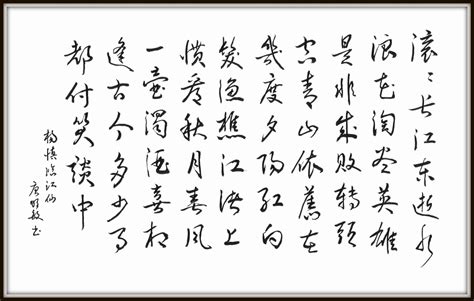 滚滚长江东逝水
浪花淘尽英雄
是非成败转頭
空青山依舊在
幾度夕陽红白
髮渔樵江渚上
惯看秋月春风
一壶濁酒喜相
逢古今多少事
都付笑谈中
杨慎临江仙
书